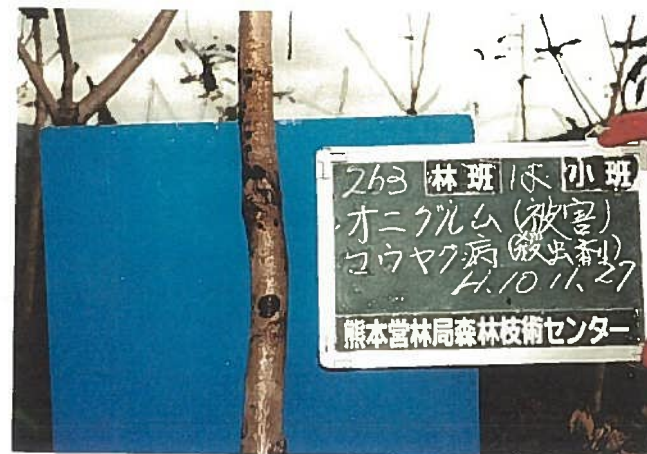 263 林班 は 小班
オニグルム(被害)
コウヤク病(殺虫剤)
H.10 11.27
熊本営林局森林技術センター